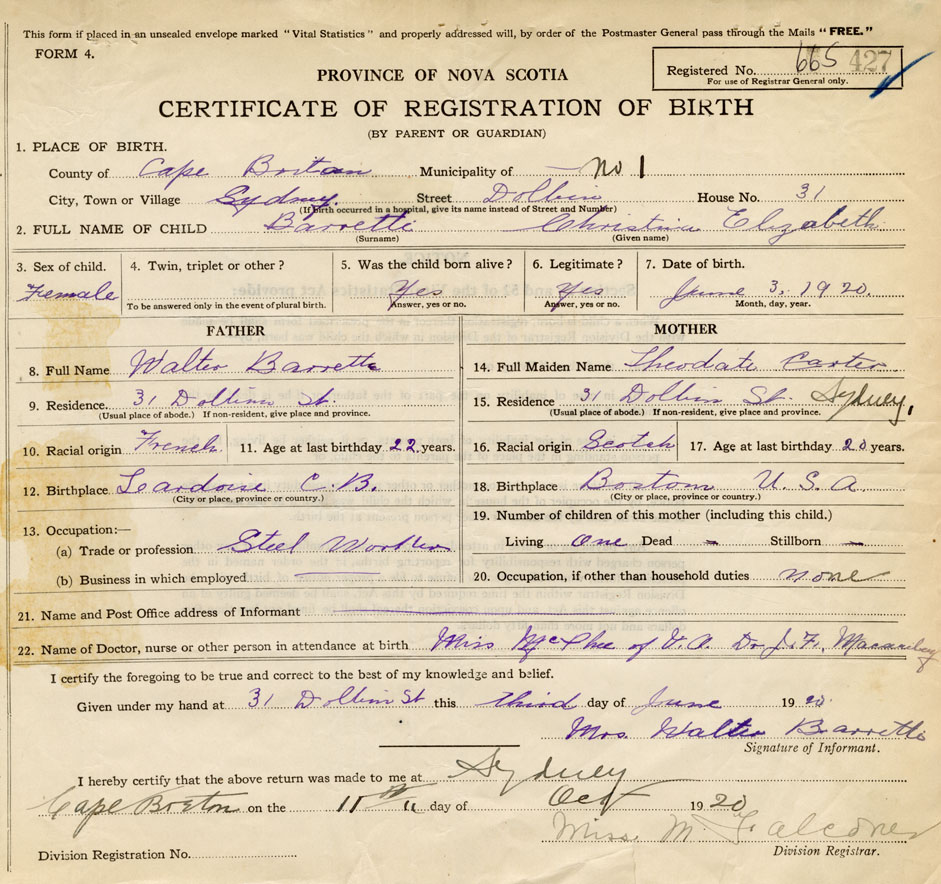 This form if placed in an unsealed envelope marked "Vital Statistics" and properly addressed will, by order of the Postmaster General pass through the Mails "FREE."
FORM 4.
Registered No. 665 427
For use of Registrar General only.
PROVINCE OF NOVA SCOTIA
CERTIFICATE OF REGISTRATION OF BIRTH
(BY PARENT OR GUARDIAN)
1. PLACE OF BIRTH.
County of Cape Breton Municipality of No 1
City, Town or Village Sydney Street Dolbin House No. 31
(If birth occurred in a hospital, give its name instead of Street and Number)
2. FULL NAME OF CHILD Barrette Christina Elizabeth
(Surname) (Given name)
3. Sex of child. 4. Twin, triplet or other? 5. Was the child born alive? 6. Legitimate? 7. Date of birth.
Female Yes Yes June 3, 1920
To be answered only in the event of plural birth. Answer, yes or no. Answer, yes or no. Month, day, year.
FATHER
8. Full Name Walter Barrette
9. Residence. 31 Dolbin St.
(Usual place of abode.) If non-resident, give place and province.
10. Racial origin French 11. Age at last birthday 22 years.
12. Birthplace Leardoise C.B.
(City or place, province or country.)
13. Occupation:—
(a) Trade or profession Steel Worker
(b) Business in which employed
MOTHER
14. Full Maiden Name Theodate Carter
15. Residence 31 Dolbin St. Sydney,
(Usual place of abode.) If non-resident, give place and province.
16. Racial origin Scotch 17. Age at last birthday 20 years.
18. Birthplace Boston U.S.A
(City or place, province or country.)
19. Number of children of this mother (including this child.)
Living One Dead - Stillborn -
20. Occupation, if other than household duties none
21. Name and Post Office address of Informant
22. Name of Doctor, nurse or other person in attendance at birth Miss McPhee of V.O. Dr J.F.
I certify the foregoing to be true and correct to the best of my knowledge and belief.
Given under my hand at 31 Dolbin St this third day of June 1920
Mrs. Walter Barrette
Signature of Informant.
I hereby certify that the above return was made to me at Sydney
Cape Breton on the 11th day of Oct 1920
Miss M. Falconer
Division Registration No. Division Registrar.